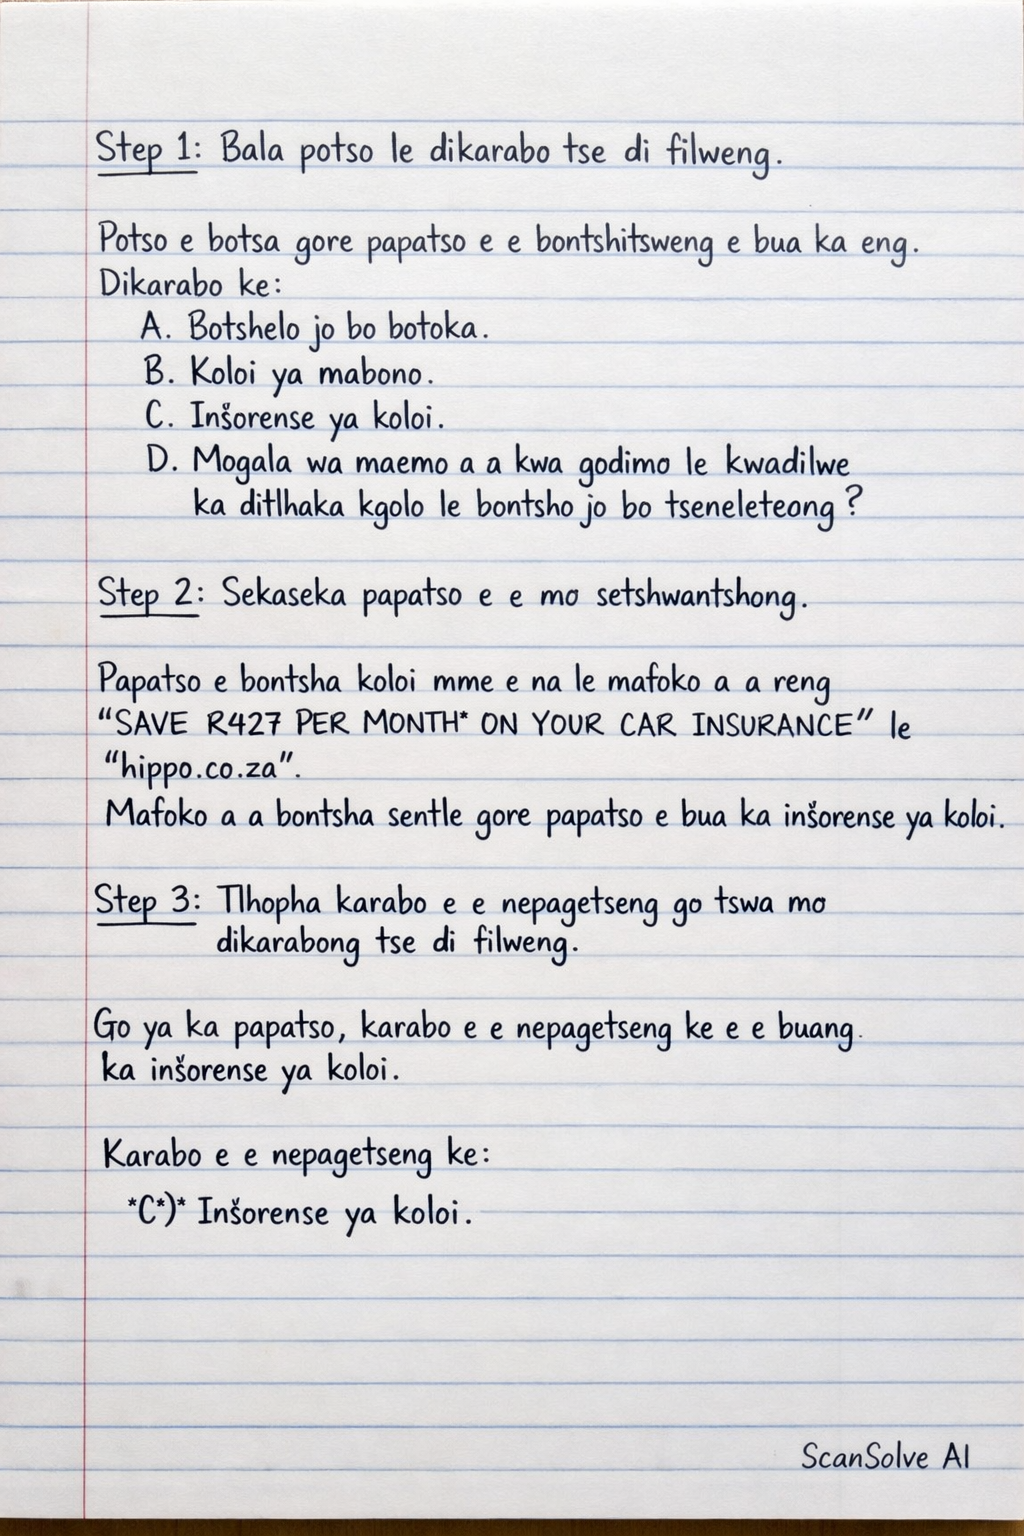 Step 1: Bala potso le dikarabo tse di filweng.
Potso e botsa gore papatso e e bontshitsweng e bua ka eng.
Dikarabo ke:
A. Botshelo jo bo botoka.
B. Koloi ya mabono.
C. Inšorense ya koloi.
D. Mogala wa maemo a a kwa godimo le kwadilwe
ka ditlhaka kgolo le bontsho jo bo tseneleteong?
Step 2: Sekaseka papatso e e mo setshwantshong.
Papatso e bontsha koloi mme e na le mafoko a a reng
"SAVE R427 PER MONTH* ON YOUR CAR INSURANCE" le
"hippo.co.za".
Mafoko a a bontsha sentle gore papatso e bua ka inšorense ya koloi.
Step 3: Tlhopha karabo e e nepagetseng go tswa mo
dikarabong tse di filweng.
Go ya ka papatso, karabo e e nepagetseng ke e e buang.
ka inšorense ya koloi.
Karabo e e nepagetseng ke:
*C*)* Inšorense ya koloi.
ScanSolve AI